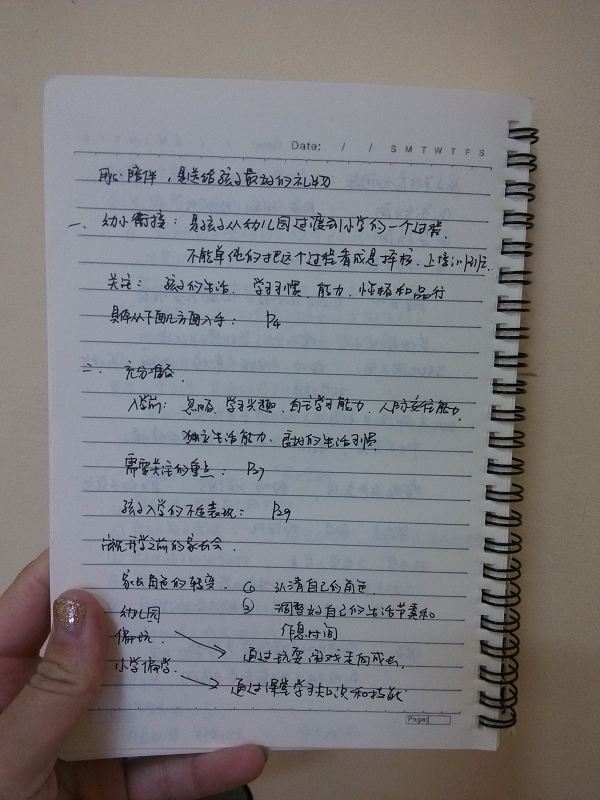 Date: / / S M T W T F S
用心陪伴，是送给孩子最好的礼物
一、幼小衔接：是孩子从幼儿园过渡到小学的一个过程，
不能单纯的把这个过程看成是择校、上培训班
关注：孩子的生活、学习习惯、能力、性格和品行
具体从下面几方面入手：P4
二、充分准备
入学前：学习兴趣、自主学习能力、人际交往能力、
独立生活能力、良好的生活习惯
需要关注的重点：P27
孩子入学的不适表现：P29
开学之前的家长会、
家长角色的转变、① 认清自己的角色
② 调整好自己的生活节奏和
作息时间
幼儿园
偏玩、
通过玩耍游戏来向成长，
小学偏学、
通过课堂学习知识和技能
Page: